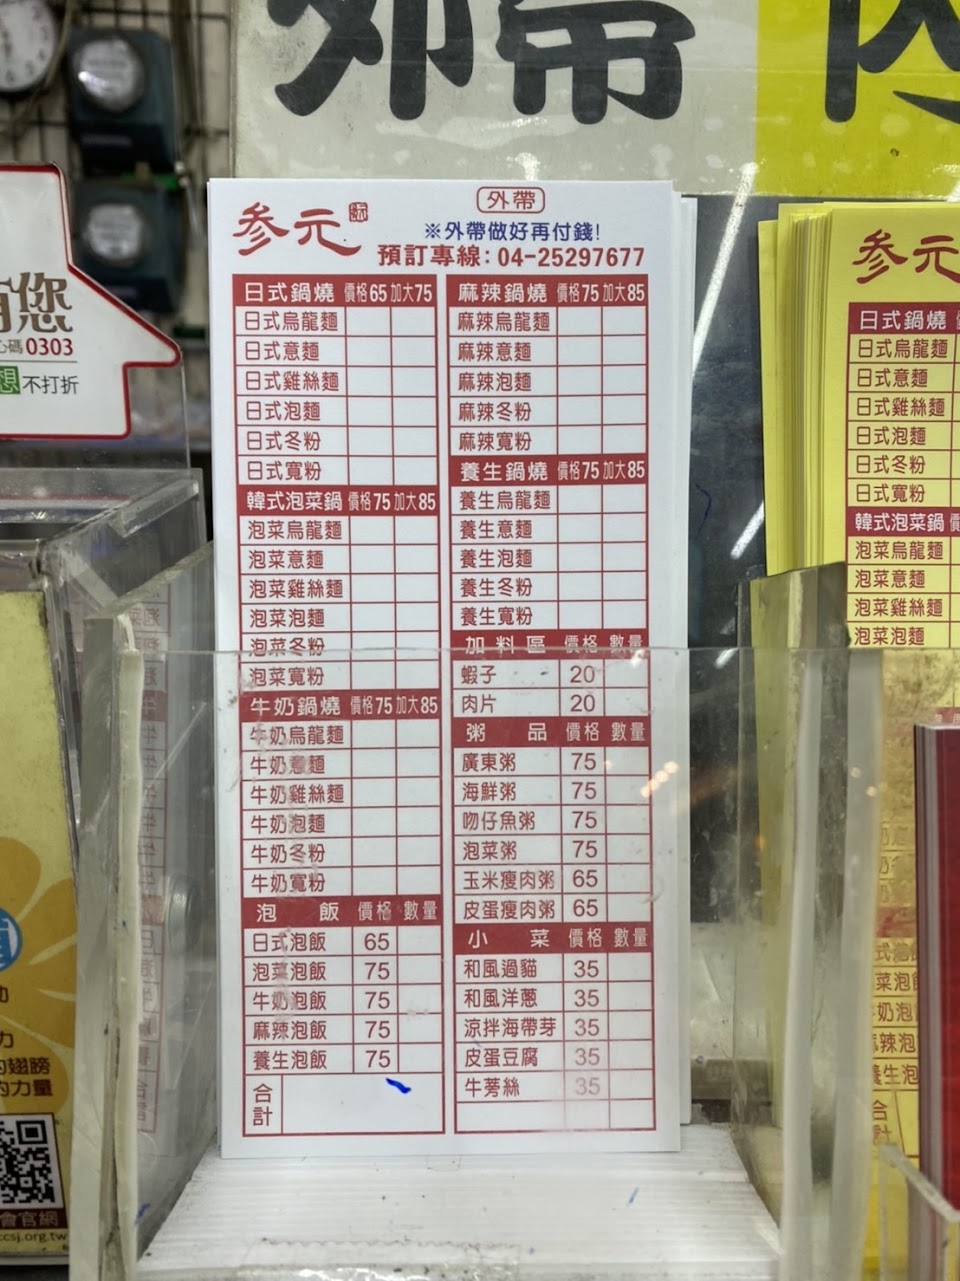 外帶
參元
外帶
※外帶做好再付錢!
預訂專線：04-25297677
日式鍋燒 價格65 加大75
日式烏龍麵
日式意麵
日式雞絲麵
日式泡麵
日式冬粉
日式寬粉
韓式泡菜鍋 價格75 加大85
泡菜烏龍麵
泡菜意麵
泡菜雞絲麵
泡菜泡麵
泡菜冬粉
泡菜寬粉
牛奶鍋燒 價格75 加大85
牛奶烏龍麵
牛奶意麵
牛奶雞絲麵
牛奶泡麵
牛奶冬粉
牛奶寬粉
泡飯 價格 數量
日式泡飯 65
泡菜泡飯 75
牛奶泡飯 75
麻辣泡飯 75
養生泡飯 75
合計
麻辣鍋燒 價格75 加大85
麻辣烏龍麵
麻辣意麵
麻辣泡麵
麻辣冬粉
麻辣寬粉
養生鍋燒 價格75 加大85
養生烏龍麵
養生意麵
養生泡麵
養生冬粉
養生寬粉
加料區 價格 數量
蝦子 20
肉片 20
粥品 價格 數量
廣東粥 75
海鮮粥 75
吻仔魚粥 75
泡菜粥 75
玉米瘦肉粥 65
皮蛋瘦肉粥 65
小菜 價格 數量
和風過貓 35
和風洋蔥 35
涼拌海帶芽 35
皮蛋豆腐 35
牛蒡絲 35
參元
日式鍋燒
日式烏龍麵
日式意麵
日式雞絲麵
日式泡麵
日式冬粉
日式寬粉
韓式泡菜鍋
泡菜烏龍麵
泡菜意麵
泡菜雞絲麵
泡菜泡麵
有您
心碼0303
想 不打折
的翅膀
的力量
會官網
ccsj.org.tw